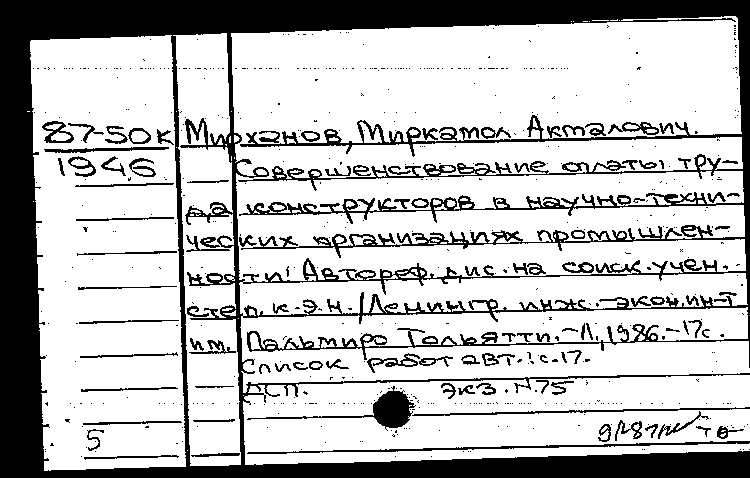 87-50к Мирханов, Миркамол Акмалович.
1946 Совершенствование оплаты тру-
да конструкторов в научно-техни-
ческих организациях промышлен-
ности: Автореф. дис. на соиск. учен.
степ. к.э.н. /Ленингр. инж.-экон. ин-т
им. Пальмиро Тольятти. -Л., 1986. -17с.
Список работ авт.: с.17.
ДСП. Экз. N75
5